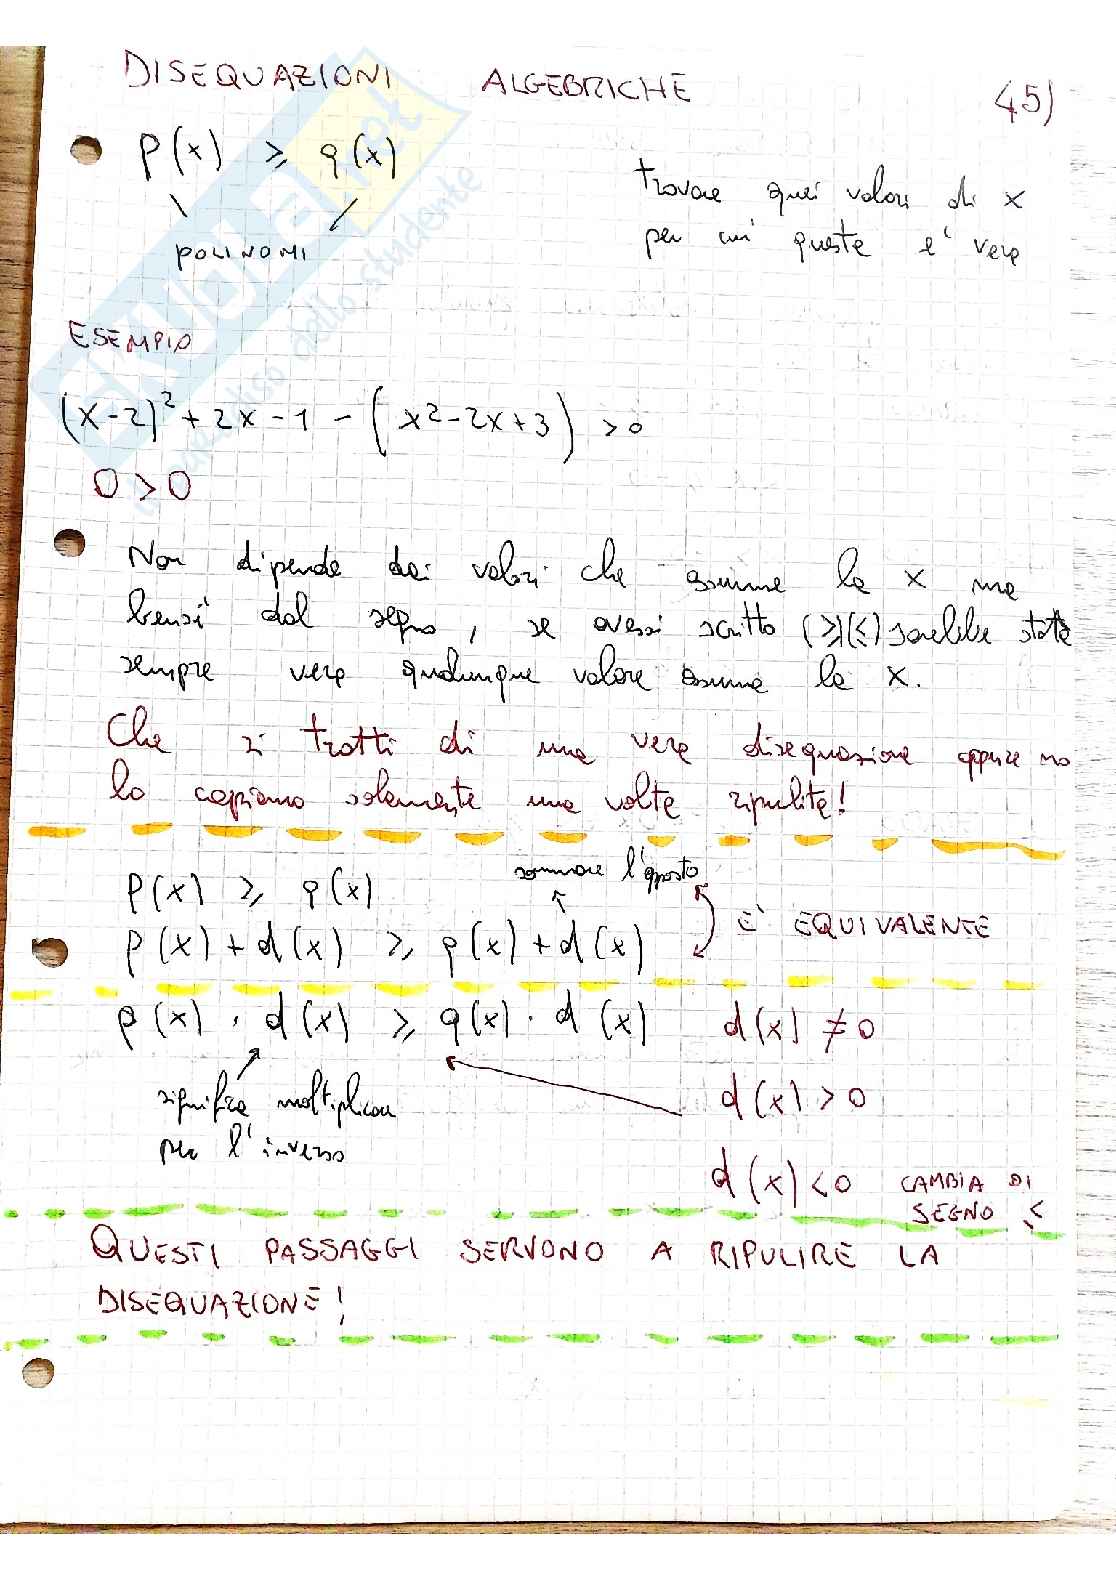 DISEQUAZIONI ALGEBRICHE 45)
p(x) ≥ q(x)
POLINOMI
trovare quei valori di x
per cui questa e' vera
ESEMPIO
(x-2)² + 2x - 1 - (x² - 2x + 3) > 0
0 > 0
Non dipende dai valori che assume la x ma
bensì dal segno, se avessi scritto (≥)(≤) sarebbe stata
sempre vera qualunque valore assuma la x.
Che si tratti di una vera disequazione oppure no
lo capiamo solamente una volta ripulita!
sommare l'opposto
p(x) ≥ q(x)
p(x) + d(x) ≥ q(x) + d(x)
E' EQUIVALENTE
p(x) · d(x) ≥ q(x) · d(x) d(x) ≠ 0
d(x) > 0
significa moltiplicare
per l'inverso
d(x) < 0 CAMBIA DI
SEGNO <
QUESTI PASSAGGI SERVONO A RIPULIRE LA
DISEQUAZIONE!
SKUOLA.net
dello studente